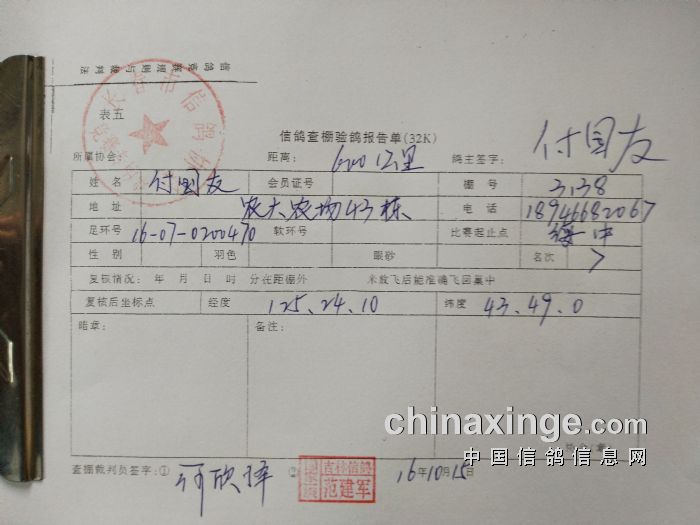 信鸽竞赛规则与裁判法
长春市信鸽协
表五
信鸽查棚验鸽报告单(32K)
所属协会: 距离: 600公里 鸽主签字: 付国友
姓名 付国友 会员证号 棚号 3138
地址 农大农场43栋 电话 18946682067
足环号 16-07-0200470 软环号 比赛起止点
性别 羽色 眼砂 名次 7
复核情况: 年 月 日 时 分在距棚外 米放飞后能准确飞回巢中
复核后坐标点 经度 125.24.10 纬度 43.49.0
暗章: 备注:
查棚裁判员签字:① ② 吉林信鸽 国家级 范建军 16年10月15日
chinaxinge.com
中国信鸽信息网